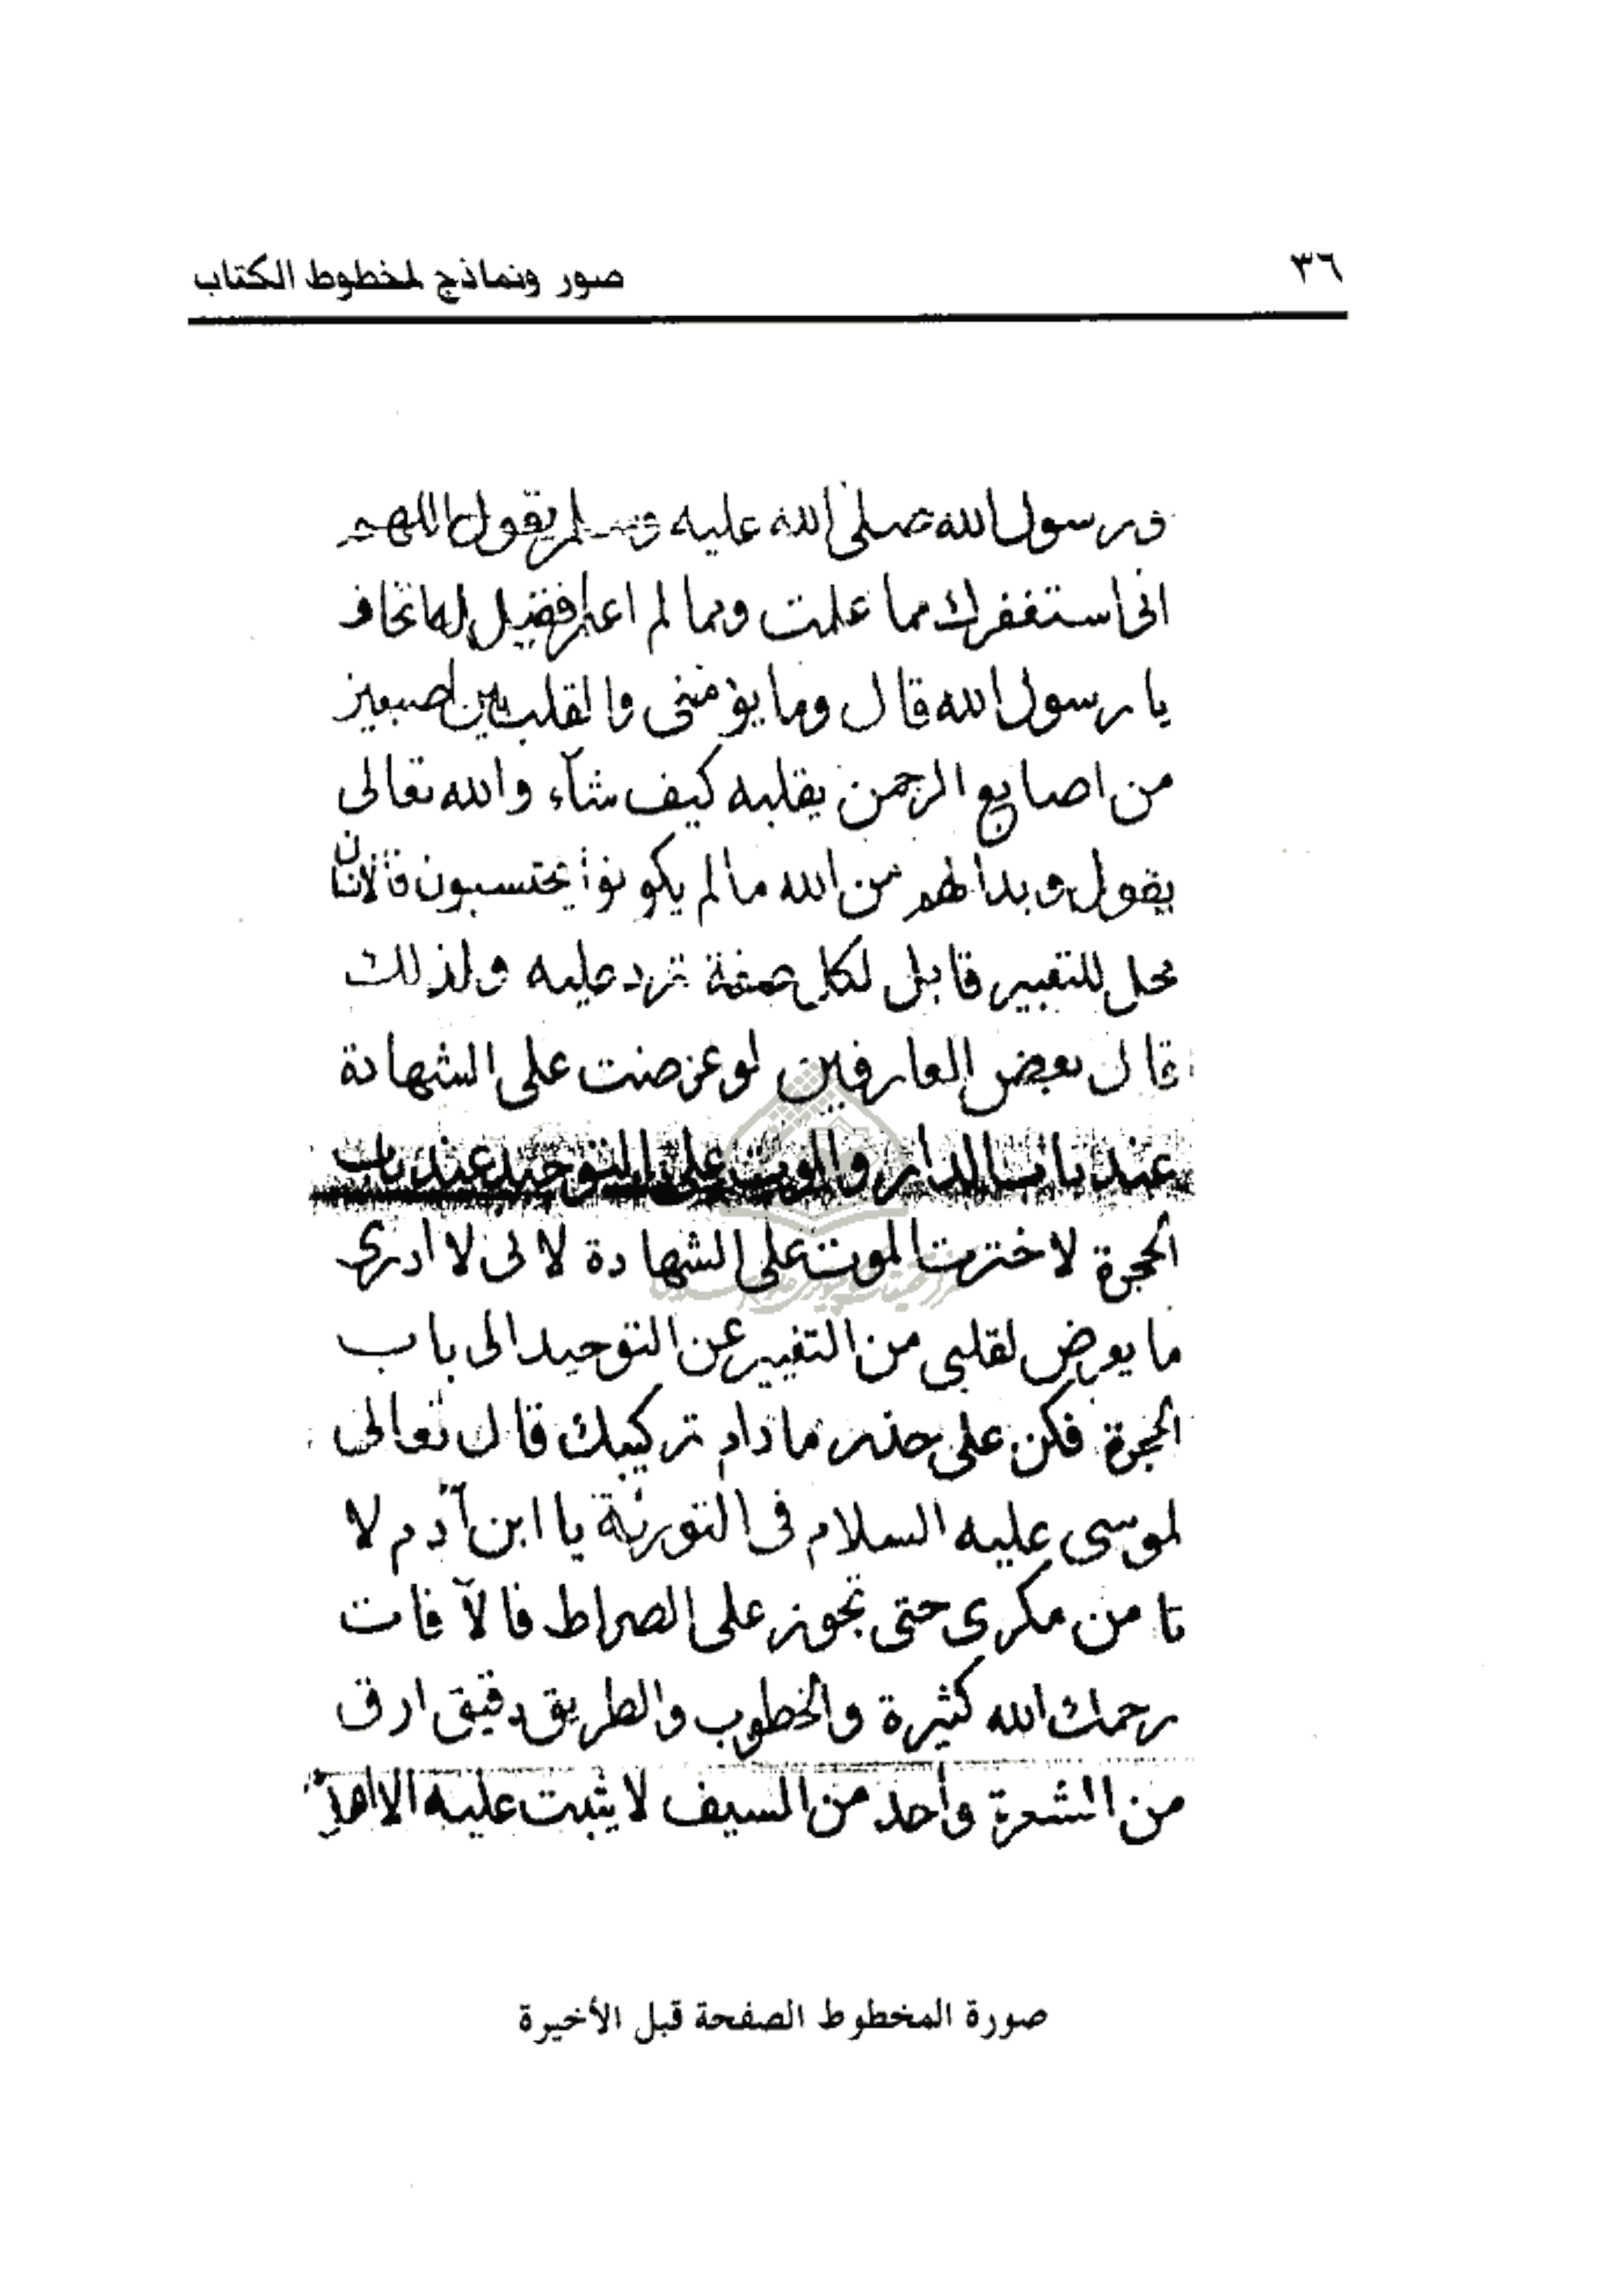 ٣٦
صور ونماذج لمخطوط الكتاب
ورسول الله صلى الله عليه وسلم يقول اللهم
انى استغفرك مما علمت ومما لم اعلم فقيل له اتخاف
يا رسول الله قال وما يؤمننى والقلب بين اصبعين
من اصابع الرحمن يقلبه كيف شآء والله تعالى
يقول وبدا لهم من الله ما لم يكونوا يحتسبون فالانسان
محل للتغيير قابل لكل صفة ترد عليه ولذلك
قال بعض العارفين لو عرضت على الشهادة
عند باب الدار والموت على التوحيد عند باب
الحجرة لاخترت الموت على الشهادة لانى لا ادرى
ما يعرض لقلبى من التغيير عن التوحيد الى باب
الحجرة فكن على حذر ما دام تركيبك قال تعالى
لموسى عليه السلام فى التورية يا ابن آدم لا
تامن مكرى حتى تجوز على الصراط فالآفات
رحمك الله كثيرة والخطوب والطريق دقيق ارق
من الشعرة وأحد من السيف لا يثبت عليه الا اهل
صورة المخطوط الصفحة قبل الأخيرة